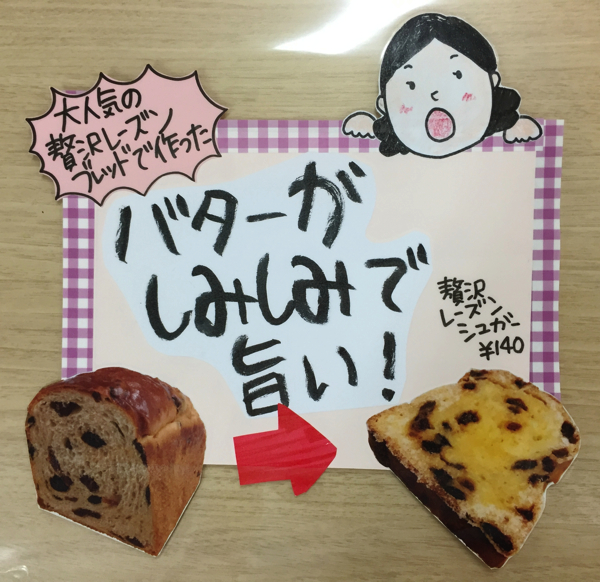 大人気の
贅沢レーズン
ブレッドで作った
バターが
しみしみで
旨い!
贅沢
レーズン
シュガー
¥140